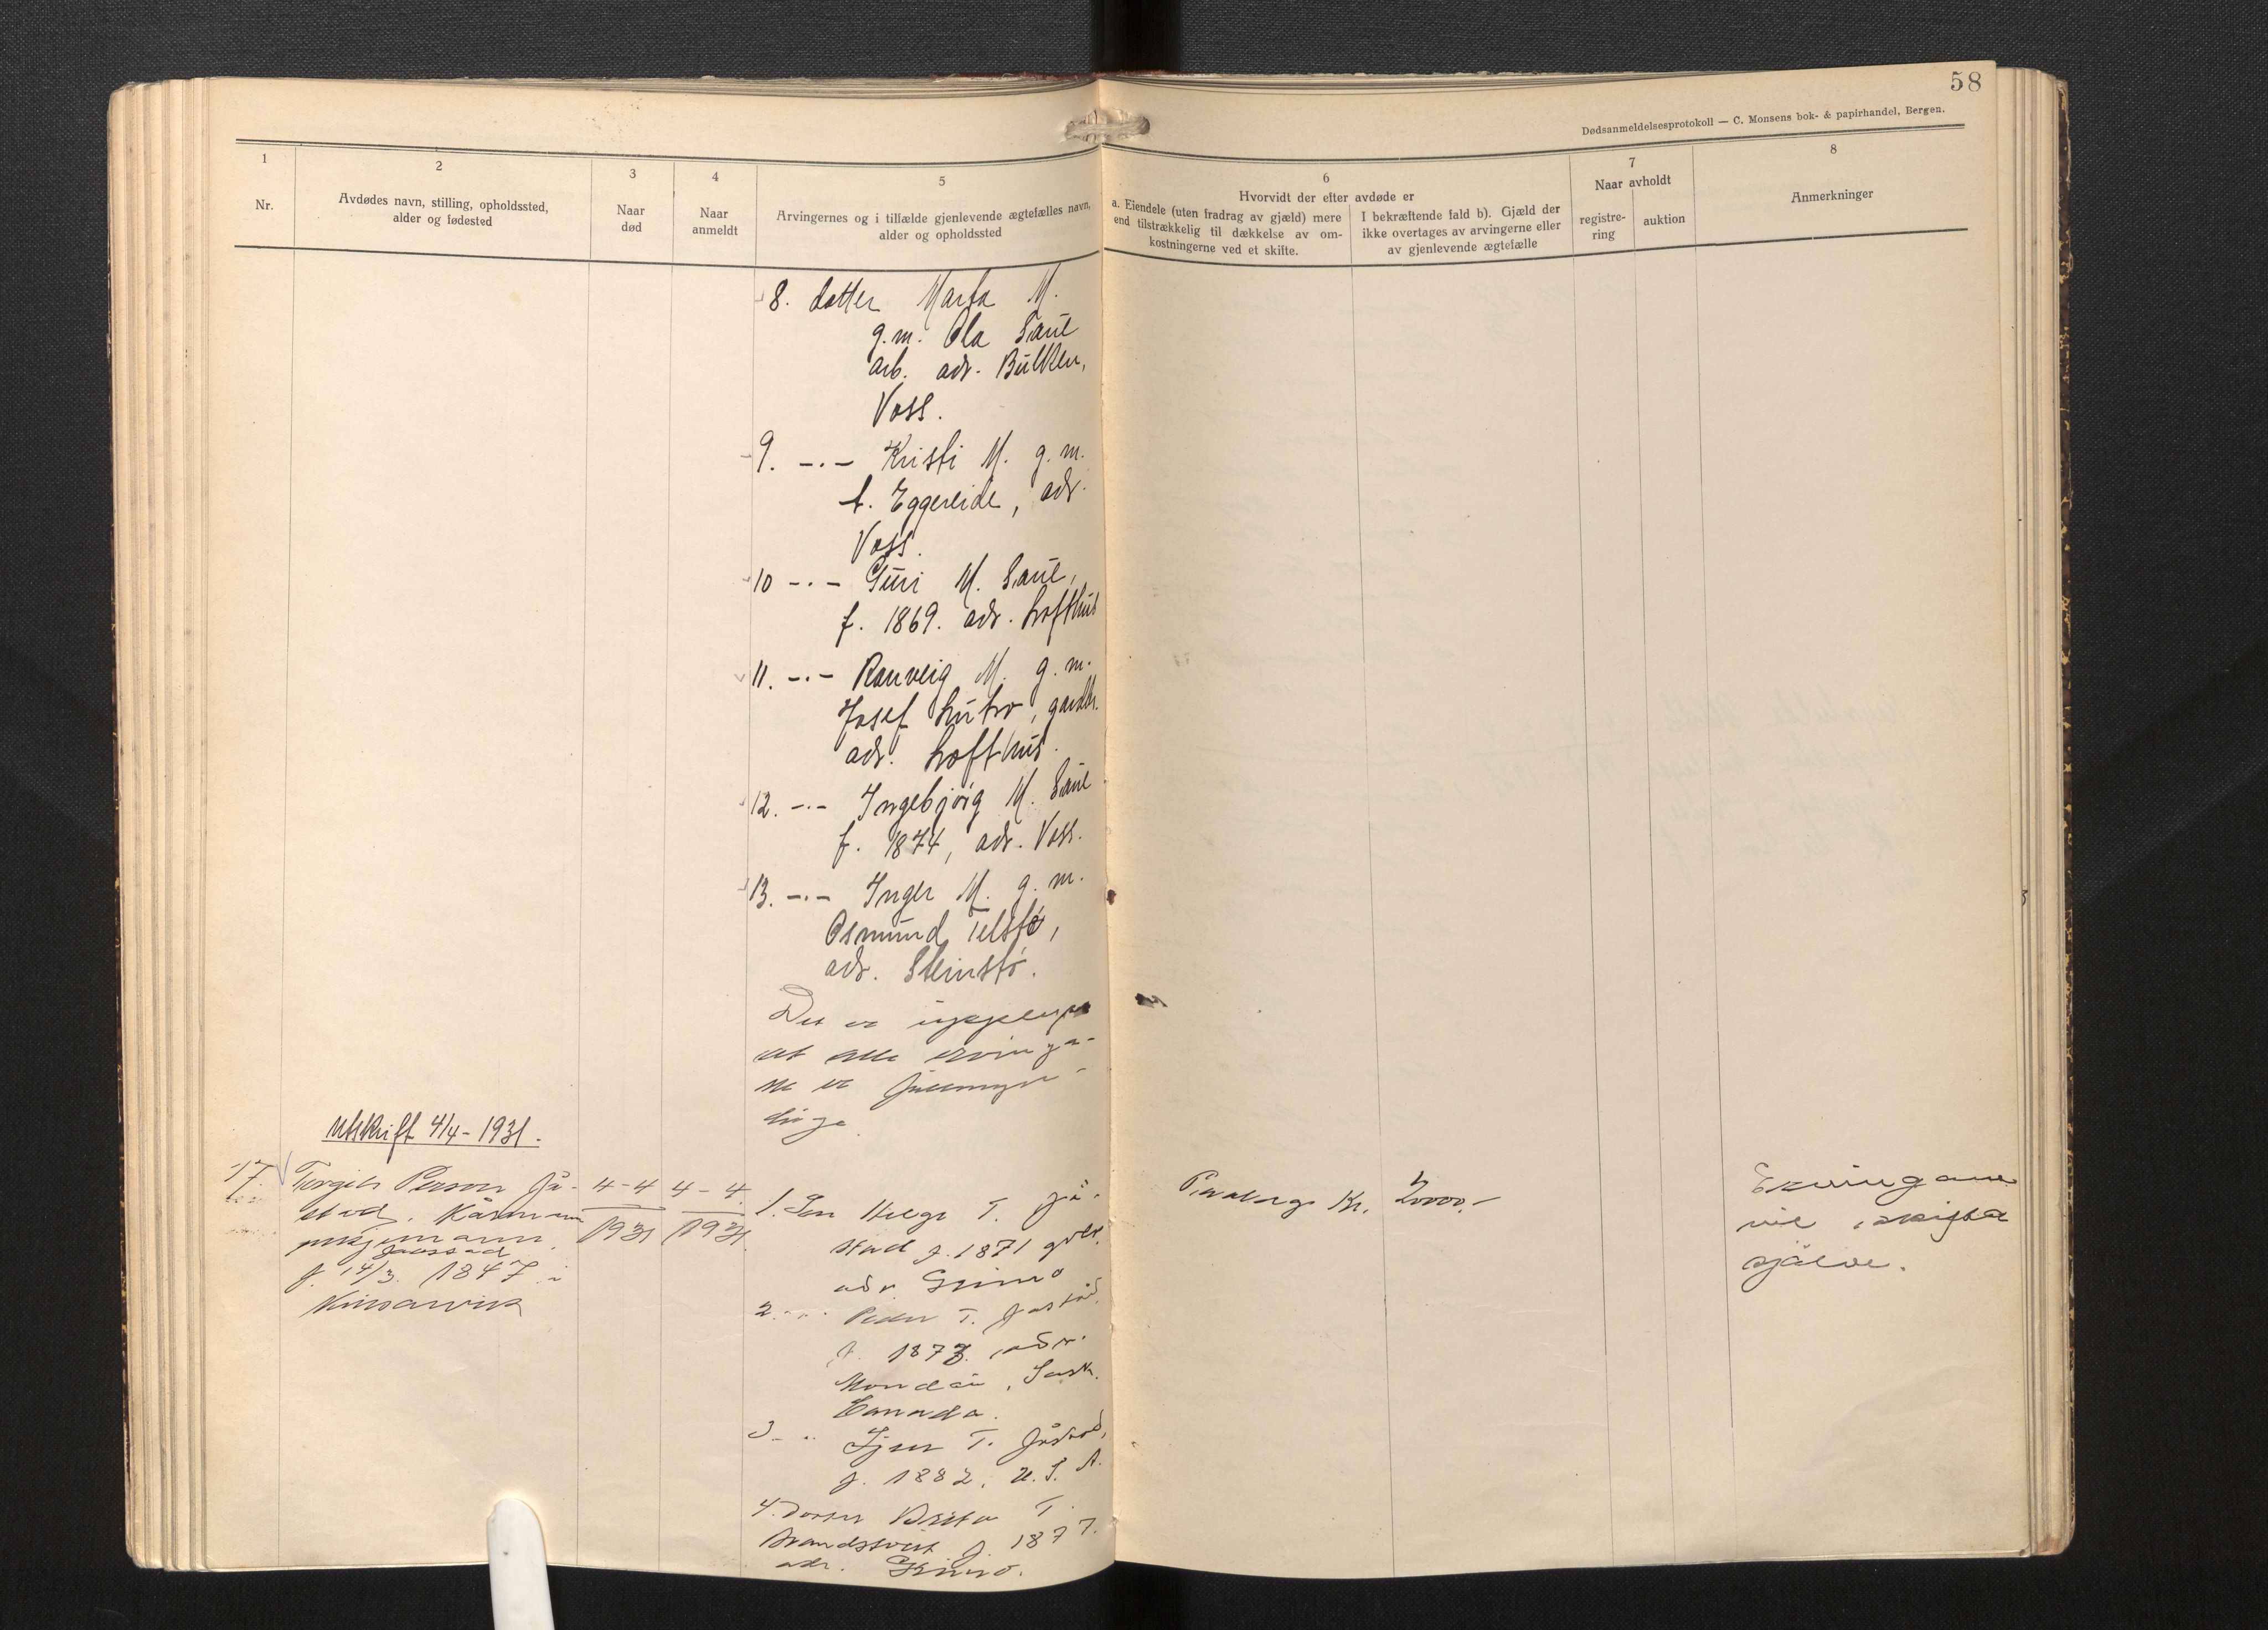 58
Dødsanmeldelsesprotokoll — C. Monsens bok- & papirhandel, Bergen.
1
Nr.
2
Avdødes navn, stilling, opholdssted,
alder og fødested
3
Naar
død
4
Naar
anmeldt
5
Arvingernes og i tilfælde gjenlevende ægtefælles navn,
alder og opholdssted
6
Hvorvidt der efter avdøde er
a. Eiendele (uten fradrag av gjæld) mere
end tilstrækkelig til dækkelse av om-
kostningerne ved et skifte.
I bekræftende fald b). Gjæld der
ikke overtages av arvingerne eller
av gjenlevende ægtefælle
7
Naar avholdt
registre-
ring
auktion
8
Anmerkninger
8. datter Marta M.
g.m. Ola Saue
arb. adr. Bulken,
Voss.
9. -.- Kristi M. g.m.
t. Eggereide, adr.
Voss.
10 -.- Guri M. Saue,
f. 1869. adr. Lofthus
11. -.- Ranveig M. g.m.
Josef Lutro, gardbr.
adr. Lofthus.
12. -.- Ingebjørg M. Saue
f. 1874, adr. Voss.
13. -.- Inger M. g.m.
Osmund Telstø,
adr. Steinstø.
Det er
at alle ervinga-
ne er fullmyn-
dige.
Utskrift 4/4-1931.
17.
Torgils Person Jå-
stad. Kårmann
f. 14/3. 1847 i
Kinsarvik
4-4
1931
4-4
1931
1. Son Helge T. Jå-
stad f. 1871 gbr.
adr. Grimo
2. Peder T. Jåstad,
f. 1873. adr.
Sask.
Canada.
3. T. Jåstad,
f. 1882, U.S.A.
4. Dotter Brita T.
f. 1877.
adr. Grimo.
Kr. 2000,-
Ervingane
vil skifta
sjølve.